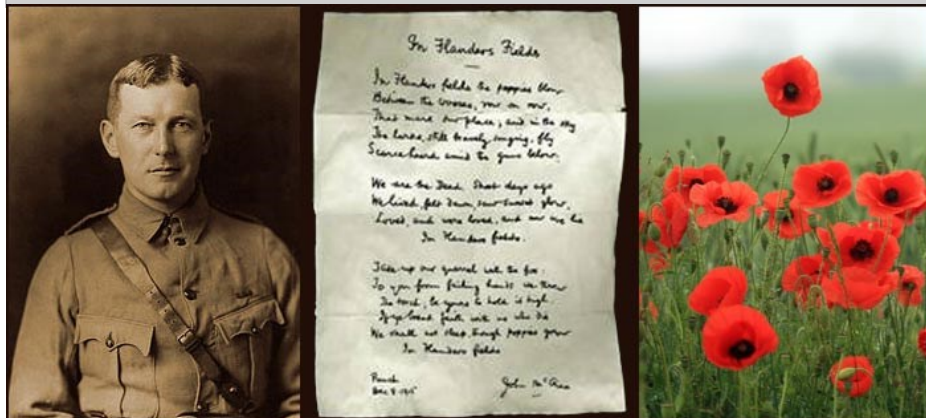 In Flanders Fields
In Flanders fields the poppies blow
Between the crosses, row on row,
That mark our place; and in the sky
The larks, still bravely singing, fly
Scarce heard amid the guns below.
We are the Dead. Short days ago
We lived, felt dawn, saw sunset glow,
Loved, and were loved, and now we lie
In Flanders fields.
Take up our quarrel with the foe:
To you from failing hands we throw
The torch; be yours to hold it high.
If ye break faith with us who die
We shall not sleep, though poppies grow
In Flanders fields
Punch
Dec 8 1915
John McCrae